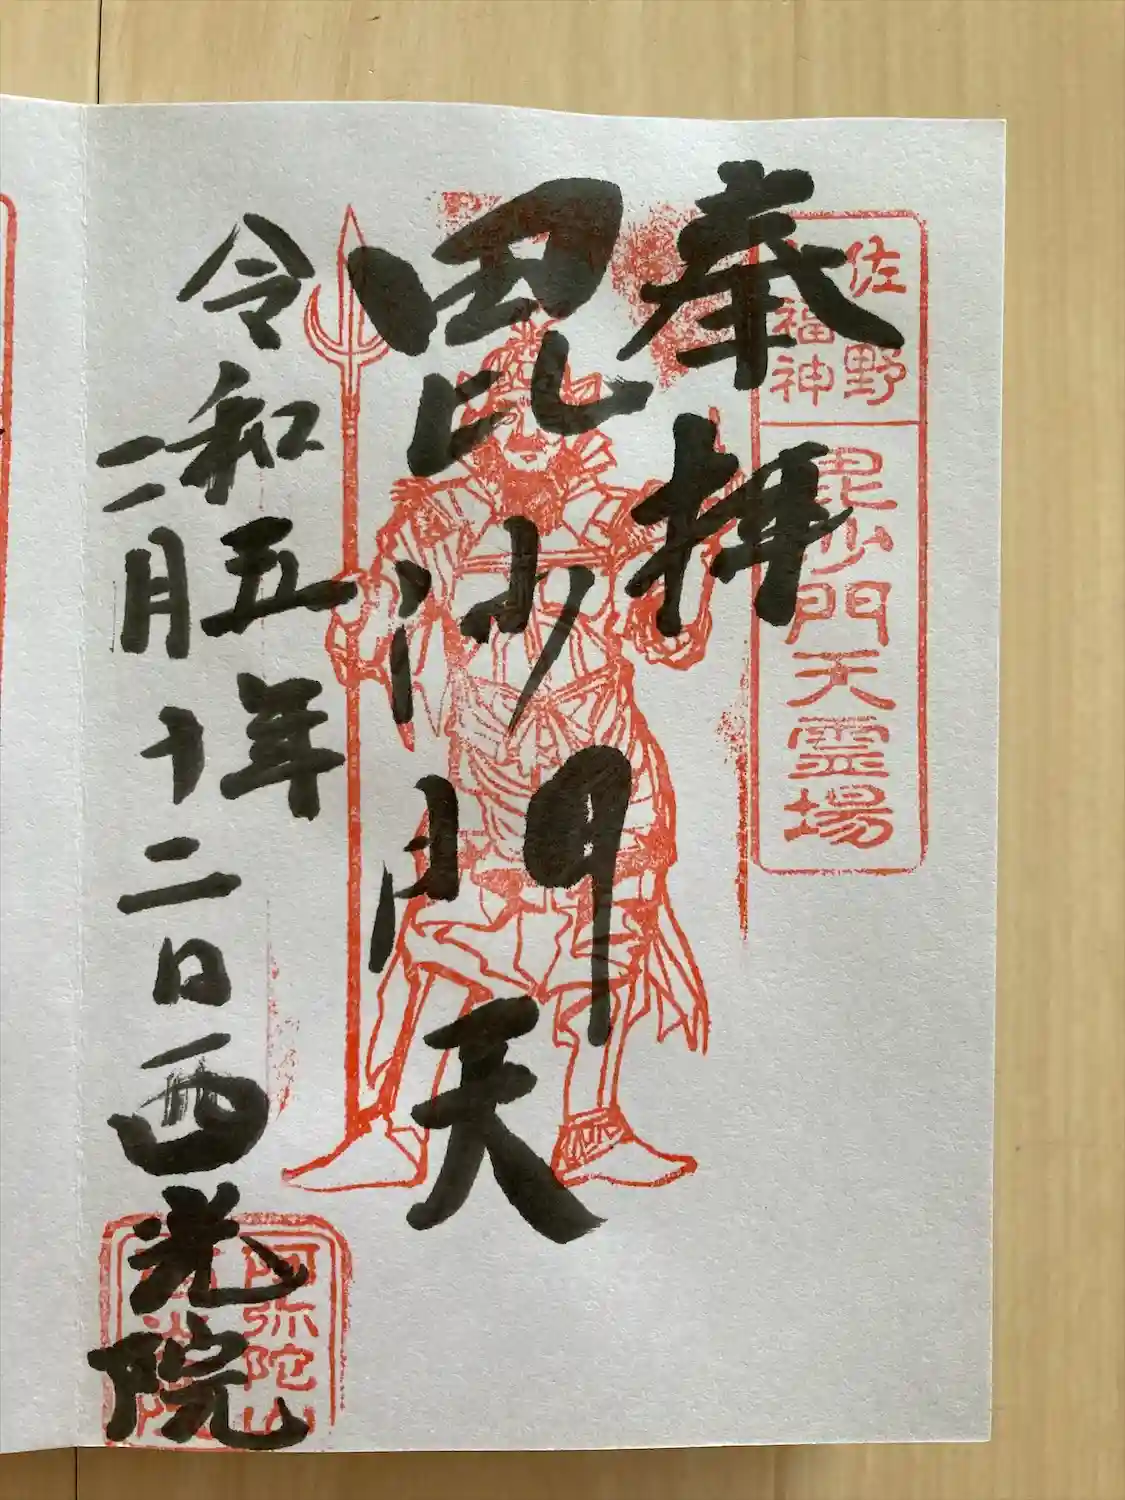 奉拝
佐野
福神
毘沙門天霊場
毘沙門天
令和五年
二月十二日 西光院
阿弥陀山